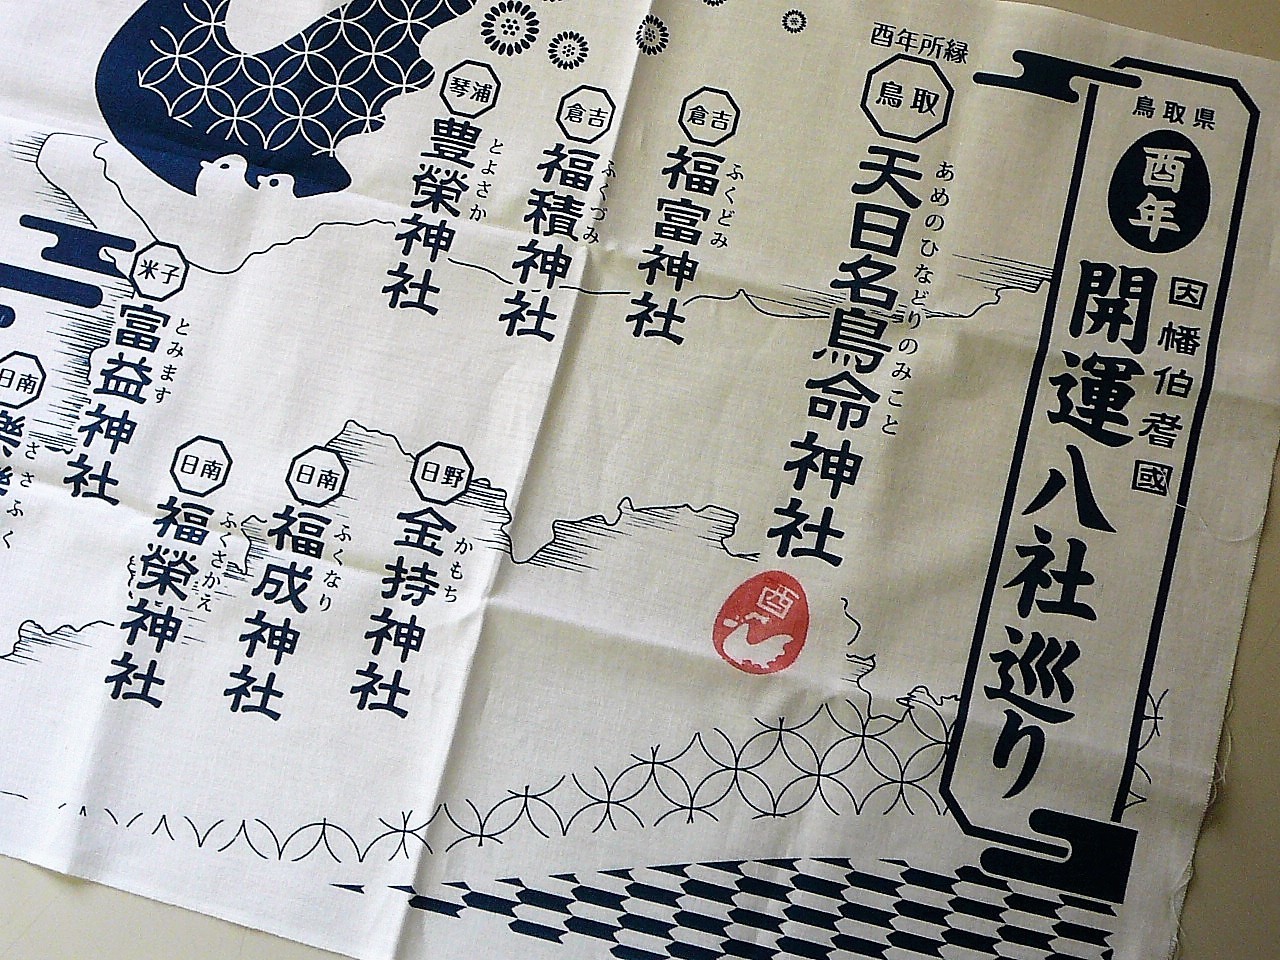 鳥取県
酉年
因幡伯耆國
開運八社巡り
酉年所縁
鳥取
天日名鳥命神社
あめのひなどりのみこと
倉吉
福富神社
ふくどみ
倉吉
福積神社
ふくづみ
琴浦
豊榮神社
とよさか
日野
金持神社
かもち
日南
福成神社
ふくなり
日南
福榮神社
ふくさかえ
米子
富益神社
とみます
日南
樂樂
ささふく
酉